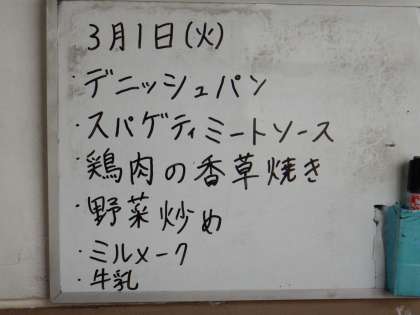 3月1日(火)
・デニッシュパン
・スパゲティミートソース
・鶏肉の香草焼き
・野菜炒め
・ミルメーク
・牛乳